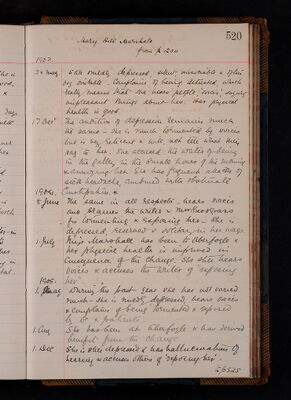 520
Mary Hill Marshall
from p 200
1903.
Still mildly depressed silent, miserable &
irritable - Complains of being detested which
really means that she hears people, voices, saying
unpleasant things about her. Has physical
health is good.
17 Oct The condition of depression remains much
the same - She is much tormented by voices
but is very reticent & will not tell what they
say to her. She accuses the writer of being
in the gallery in the small hours of the morning
& annoying her. She has frequent attacks of
sick headache, combined with obstinate
1904. Constipation, &
8 June The same in all respects - hears voices
and blames the writer &
for tormenting & exposing her - She is
depressed, reserved & solitary in her ways.
1 July Miss Marshall has been to Aberfoyle &
her physical health is improved in
consequence of the change. She still hears
voices & accuses the writer of "exposing
1905. her".
During the past year she has not varied
much - she is mildly depressed, hears voices
& complains of being tormented & exposed
by Dr & patients.
1 Aug She has been at Aberfoyle & has derived
benefit from the change
1 Dec She is still depressed & has hallucinations of
hearing & accuses others of "exposing her".